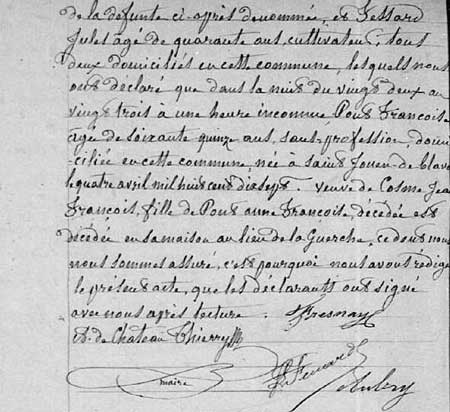 de la défunte ci-après dénommée, et Fessard
Jules âgé de quarante ans, cultivateur, tous
deux domiciliés en cette commune, lesquels nous
ont déclaré que dans la nuit du vingt deux au
vingt trois à une heure inconnue Pont Françoise
âgée de soixante quinze ans, sans profession, domi-
ciliée en cette commune née à Saint Jouen-de-Blava
le quatre avril mil huit cent dix sept. veuve de Cosme Jean
François, fille de Pont anne Françoise, décédée est
décédée en sa maison au lieu de la Guerche, ce dont nous
nous sommes assuré, c'est pourquoi nous avons rédigé
le présent acte, que les déclarants ont signé
avec nous après lecture. Fresnay
Ct. de Château Thierry
maire
Aubry